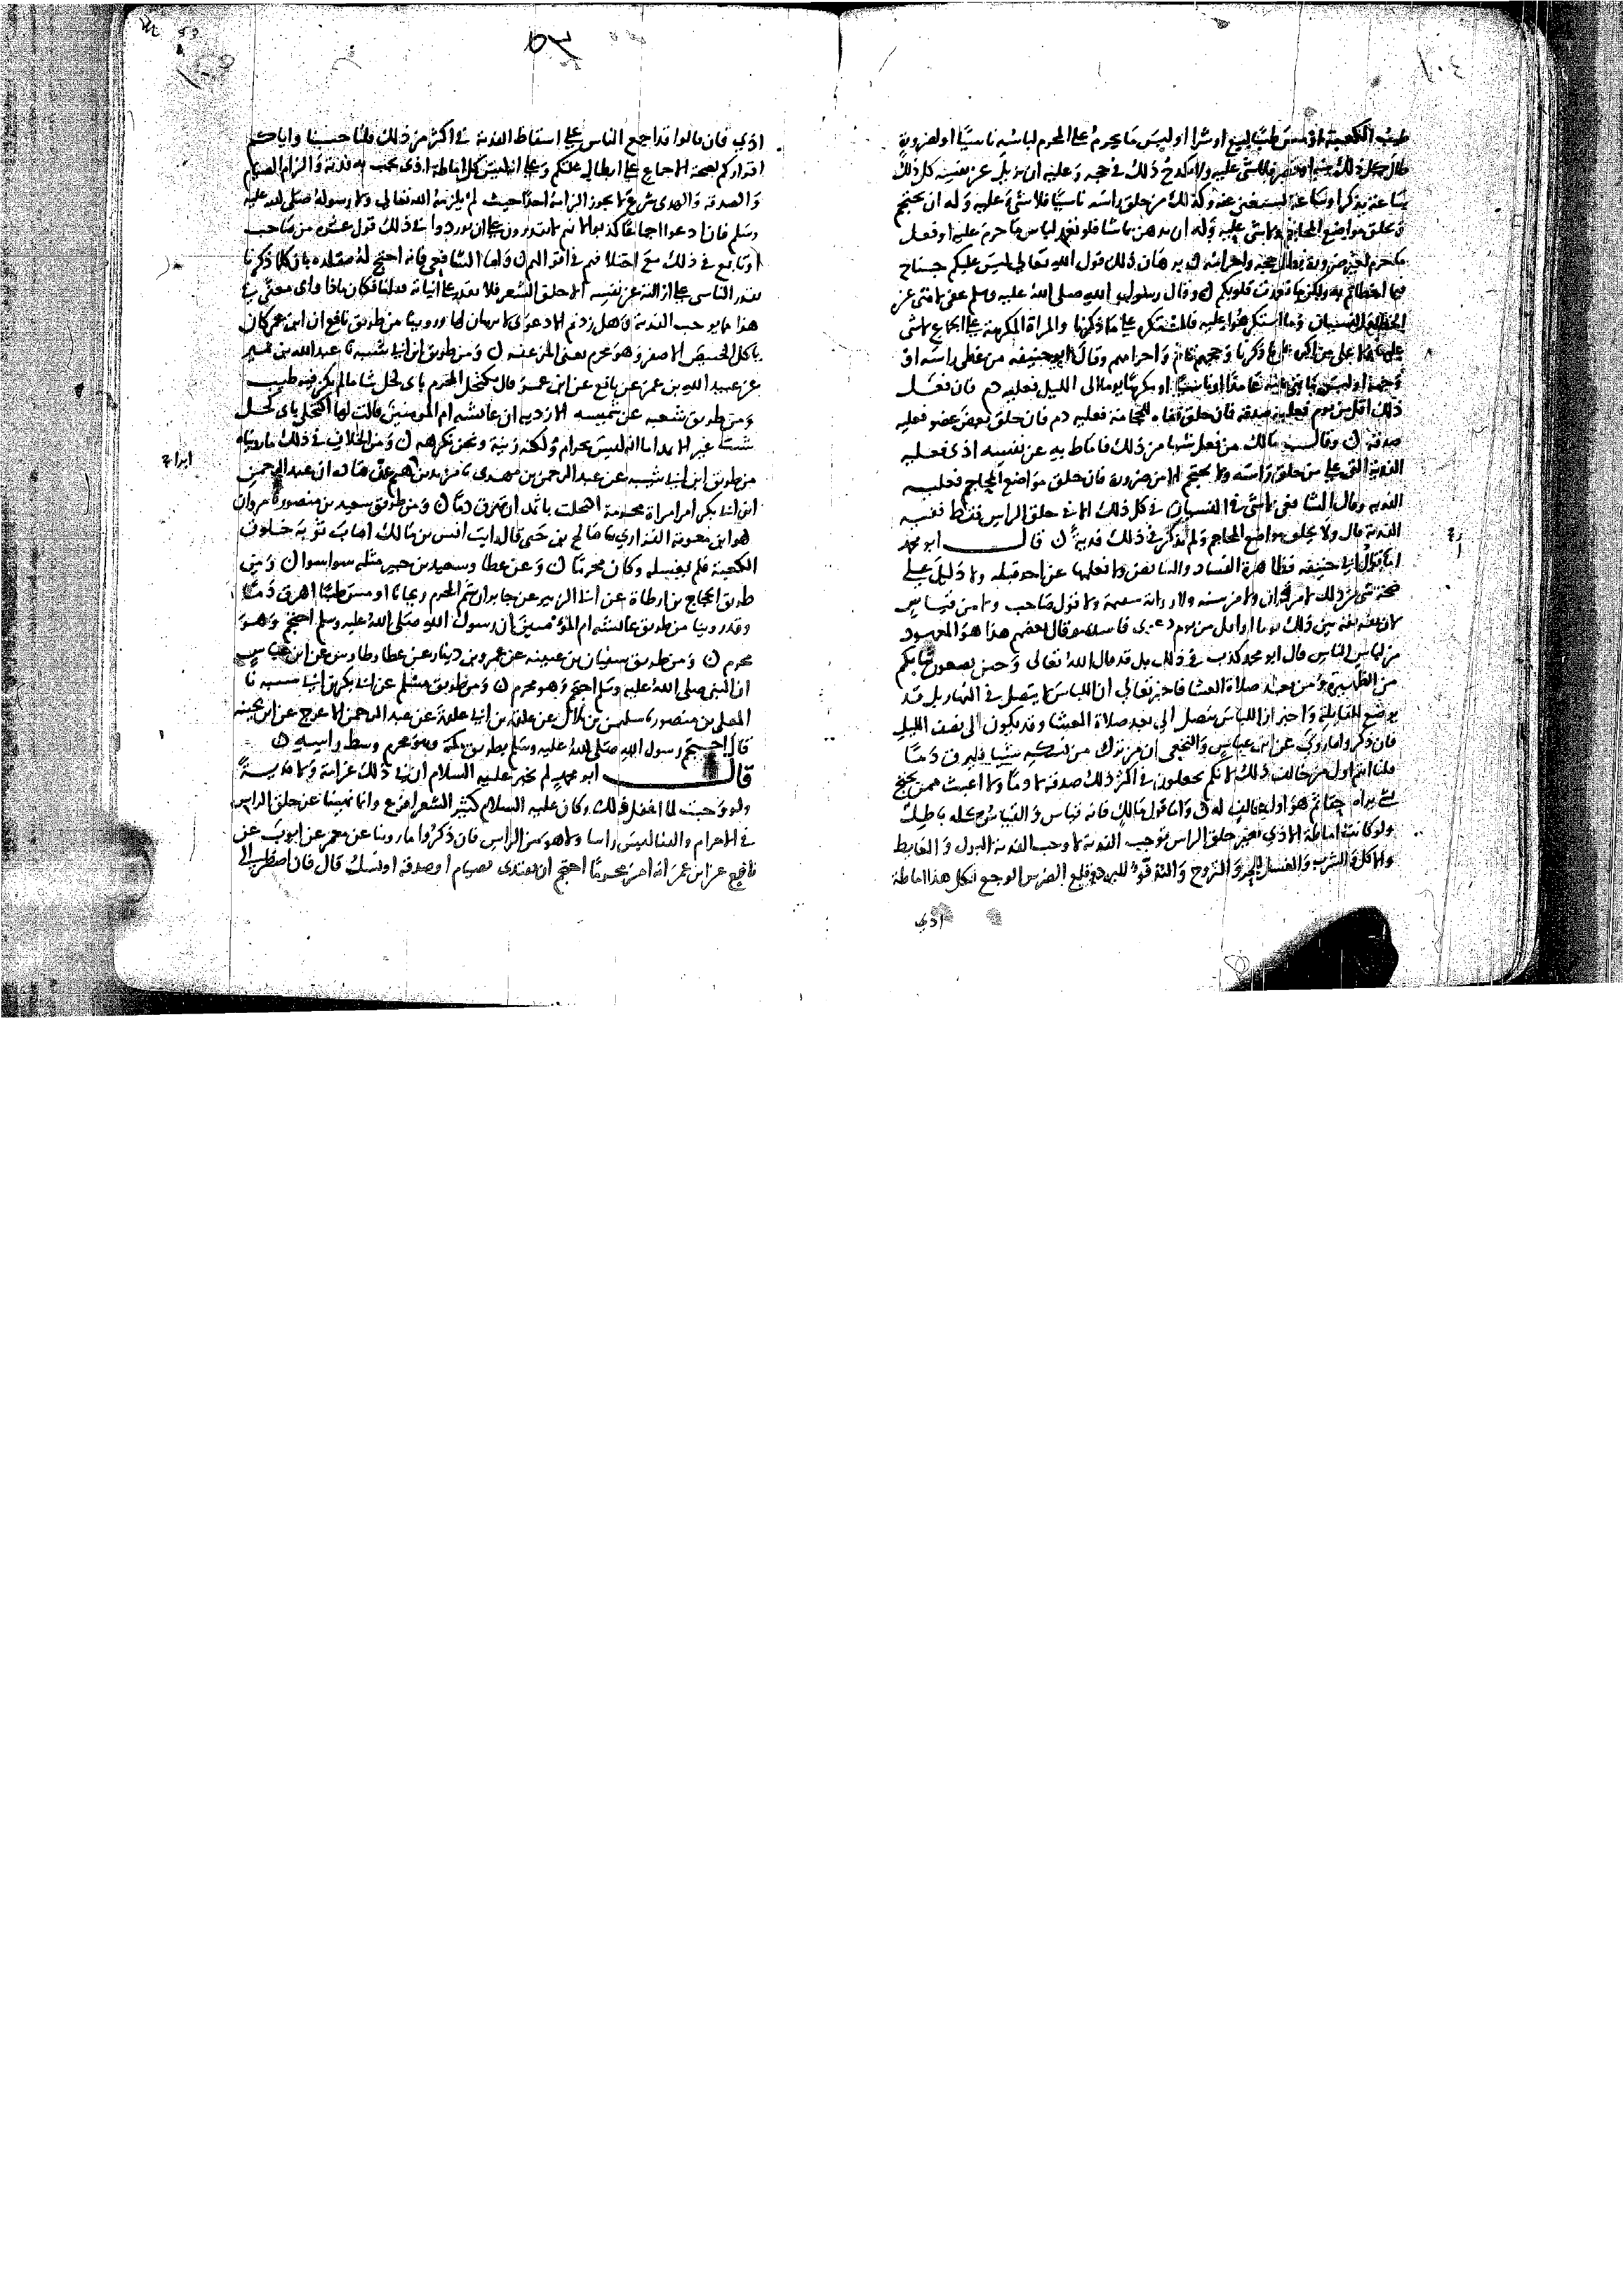 طيب الكعبة او مس طيبا لبيع او شرا او لبس ما يحرم على المحرم لباسه ناسيا او لضرورة
طال كل ذلك منه او قصر فلا شي عليه ولا يكدح ذلك في حجه وعليه ان يزيل عن نفسه كل ذلك
ساعة يذكره او ساعة يستغني عنه وكذلك من حلق راسه ناسيا فلا شي عليه وله ان يحتجم
ويحلق مواضع المحاجم ولا شي عليه وله ان يدهن بما شا فلو تعمد لباس ما حرم عليه او فعل
ما حرم لغير ضرورة بطل حجه واحرامه ن برهان ذلك قول الله تعالى ليس عليكم جناح
فيما اخطاتم به ولكن ما تعمدت قلوبكم ن وقال رسول الله صلى الله عليه وسلم عفي لامتي عن
الخطا والنسيان وما استكرهوا عليه فالمستكره على ما ذكرنا والمراة المكرهة على الجماع لا شي
عليها ولا على من اكره على ما ذكرنا وحجهم تام واحرامهم وقال ابو حنيفه من غطى راسه او
وجهه او لبس ما نهي عنه عامدا او ناسيا او مكرها يوما الى الليل فعليه دم فان فعل
ذلك اقل من يوم فعليه صدقه فان حلق قفاه للحجامة فعليه دم فان حلق بعض عضو فعليه
صدقه ن وقال مالك من فعل شيا من ذلك فاماط به عن نفسه اذى فعليه
الفدية التي على من حلق راسه ولا يحتجم الا من ضرورة فان حلق مواضع المحاجم فعليه
الفديه وقال الشافعي لا شي في النسيان في كل ذلك الا في حلق الراس فقط ففيه
الفدية قال ولا يحلق مواضع المحاجم ولم يذكر في ذلك فدية ن قال ابو محمد
اما قول ابي حنيفه فظاهر الفساد والتناقض ولا نعلمها عن احد قبله ولا دليل على
صحة شي من ذلك لا من قران ولا من سنه ولا رواية سقيمة ولا قول صاحب ولا من قياس
لان تفريقه بين ذلك يوما او اقل من يوم دعوى فاسده وقال بعضهم هذا هو المعهود
من لباس الناس قال ابو محمد كذب في ذلك بل قد قال الله تعالى وحين تضعون ثيابكم
من الظهيرة ومن بعد صلاة العشا فاخبر تعالى ان اللباس لا يتصل في النهار بل قد
يوضع للقايلة واخبر ان اللباس يتصل الى بعد صلاة العشا وقد يكون الى نصف الليل
فان ذكروا ما روي عن ابن عباس والنخعي ان من ترك من نسكه شيا فليهرق دما
قلنا انتم اول من خالف ذلك لانكم تجعلون في اكثر ذلك صدقة لا دما ولا اعبث ممن يحتج
بشي يراه حقا ثم هو اول مخالف له ن واما قول مالك فانه قياس والقياس كله باطل
ولو كانت اماطة الاذى بغير حلق الراس توجب الفدية لاوجب الفدية البول والغايط
والاكل والشرب والغسل للحر والتروح والتدفو للبرد وقلع الضرس الوجع فكل هذا اماطة
اذى
اذى فان قالوا قد اجمع الناس على اسقاط الفدية في اكثر من ذلك قلنا حسبنا واياكم
اقراركم بصحة الاجماع على ابطال علتكم وعلى انه ليس كل اماطة اذى تجب به فدية والزام الصيام
والصدقه والهدى شرع لا يجوز الزامه احدا حيث لم يلزمه الله تعالى ولا رسوله صلى الله عليه
وسلم فان ادعوا اجماعا كذبوا لانهم لا يقدرون على ان يوردوا في ذلك قول عشرة من صاحب
او تابع في ذلك مع اختلافهم في اقوالهم ن واما الشافعي فانه احتج له مقلده بان كل ما ذكرنا
يقدر الناس على ازالته عن نفسه الا حلق الشعر فلا يقدر على انباته قلنا فكان ماذا واي معنى في
هذا مما يوجب الفدية وهل زدتم الا دعوى لا برهان لها وروينا من طريق نافع ان ابن عمر كان
ياكل الخبيص الاصفر وهو محرم يعني المزعفر ن ومن طريق ابن ابي شيبه نا عبد الله بن نمير
عن عبيد الله بن عمر عن نافع عن ابن عمر قال يكتحل المحرم باي كحل شا ما لم يكن فيه طيب
ومن طريق شعبه عن شميسه الازديه ان عائشه ام المومنين قالت لها اكتحلي باي كحل
شئت غير الاثمد اما انه ليس بحرام ولكنه زينة ونحن نكرهه ن ومن الخلاف في ذلك ما رويناه
من طريق ابن ابي شيبه عن عبد الرحمن بن مهدي نا يزيد بن ابراهيم عن قتاده ان عبد الرحمن
ابن ابي بكر امر امراة محرمة اكتحلت باثمد ان تهرق دما ن ومن طريق سعيد بن منصور نا مروان
هو ابن معوية الفزاري نا صالح بن حي قال رايت انس بن مالك اصاب ثوبه خلوق
الكعبة فلم يغسله وكان محرما ن وعن عطا وسعيد بن جبير مثله سوا سوا ن ومن
طريق الحجاج بن ارطاة عن ابي الزبير عن جابر ان شم المحرم ريحانا او مس طيبا اهرق دما
وقد روينا من طريق عائشه ام المؤمنين ان رسول الله صلى الله عليه وسلم احتجم وهو
محرم ن ومن طريق سفيان بن عيينه عن عمرو بن دينار عن عطا وطاوس عن ابن عباس
ان النبي صلى الله عليه وسلم احتجم وهو محرم ن ومن طريق مسلم عن ابي بكر بن ابي شيبه نا
المعلى بن منصور نا سليمن بن بلال عن علقمه بن ابي علقمة عن عبد الرحمن الاعرج عن ابن بحينه
قال احتجم رسول الله صلى الله عليه وسلم بطريق مكة وهو محرم وسط راسه ن
قال ابو محمد لم يخبر عليه السلام ان في ذلك غرامة ولا فدية
ولو وجبت لما اغفل ذلك وكان عليه السلام كثير الشعر افرع وانما نهينا عن حلق الراس
في الاحرام والقفا ليس راسا ولا هو من الراس فان ذكروا ما روينا عن معمر عن ايوب عن
نافع عن ابن عمر انه امر محرما احتجم ان يفتدي بصيام او صدقه او نسك قال فان اضطر الى